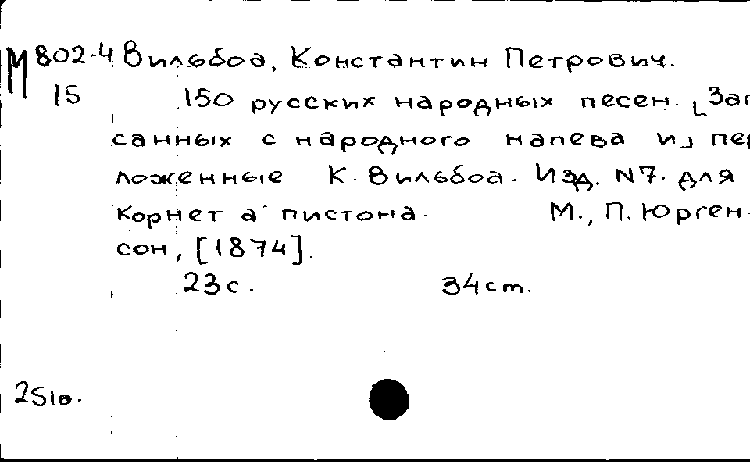 М 802-4 Вильбоа, Константин Петрович.
15 150 русских народных песен. [Зап
санных с народного напева и] пер
ложенные К. Вильбоа. Изд. N7. для
корнет а' пистона. М., П. Юрген-
сон, [1874].
23 с. 34 cm.